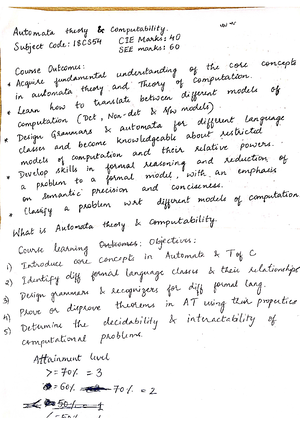 Automata theory & Computability.
Subject Code: 18CS54 CIE Marks: 40
SEE marks: 60
Course Outcomes:
* Acquire fundamental understanding of the core concepts
in automata theory and Theory of Computation.
* Learn how to translate between different models of
Computation (Det, Non-det & models).
* Design Grammars & automata for different language
classes and become knowledgeable about restricted
models of computation and their relative powers.
* Develop skills in formal reasoning and reduction of
a problem to a formal model, with an emphasis
on semantic precision and conciseness.
* Classify a problem wrt different models of Computation
What is Automata theory & computability.
Course learning Outcomes: Objectives:
1) Introduce core concepts in Automata & T of C
2) Identify diff formal language classes & their relationships
3) Design grammars & recognizers for diff formal lang.
4) Prove or disprove theorems in AT using their properties
5) Determine the decidability & interactability of
computational problems.
Attainment level
>= 70% = 3
60% 70% = 2
50%